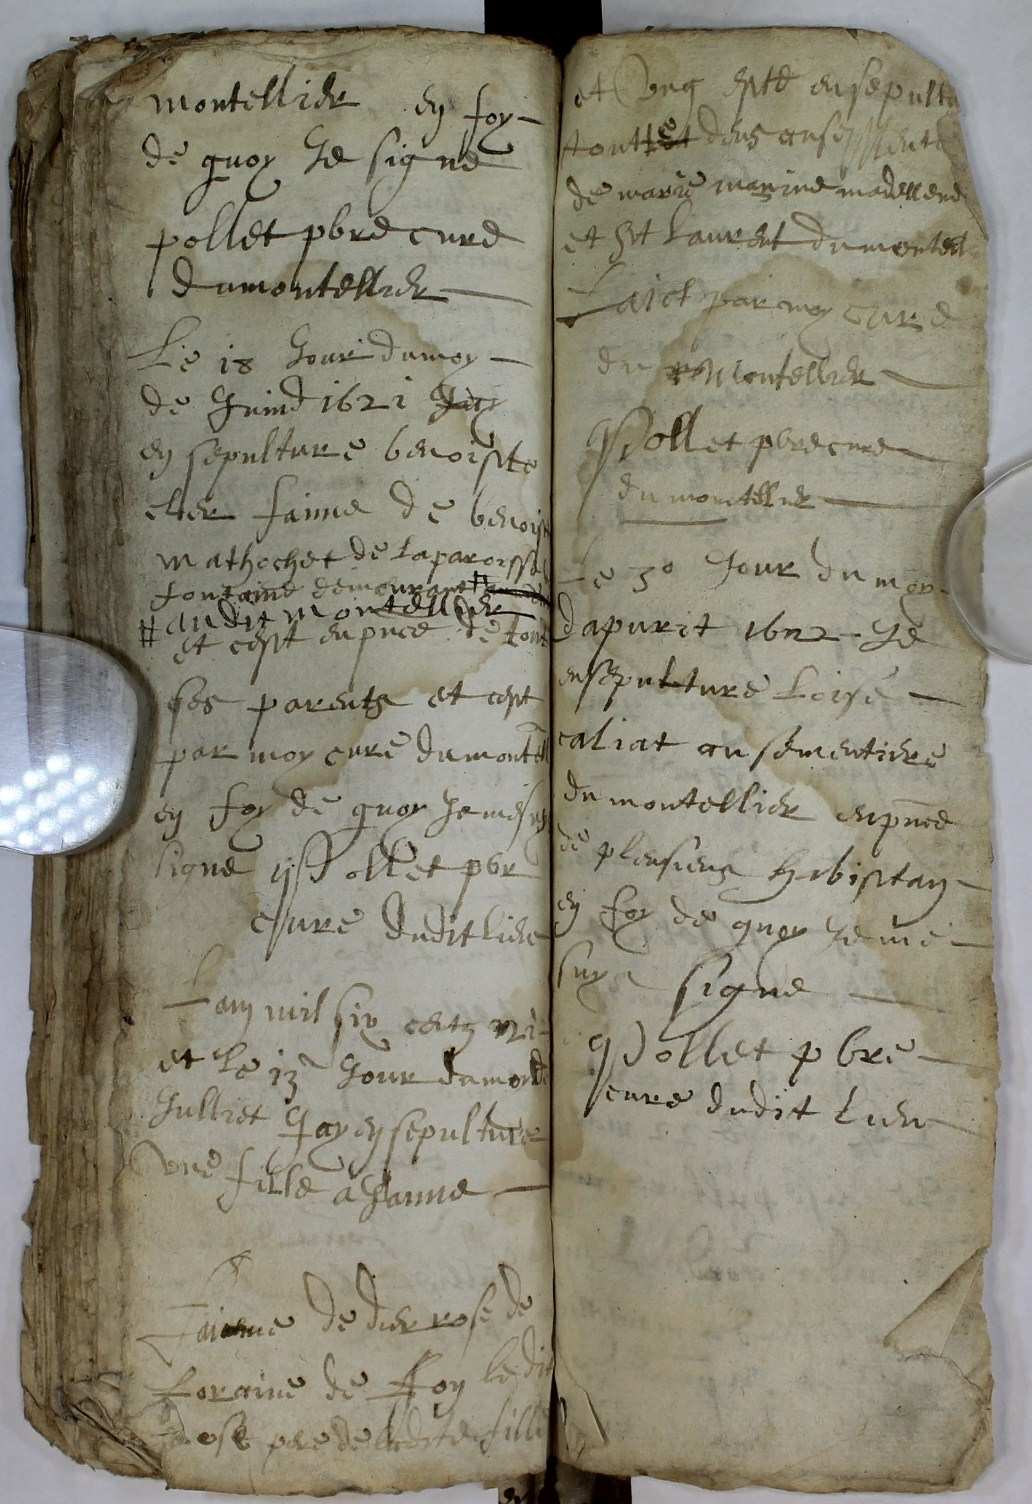 montellier en foy
de quoy Je signe
pollet pbre cure
du montellier
Le 18 Jour du moy
de Juind 1621 Jay
en sepulture benoiste
femme de benoist
mathochet de la paroisse
fontaine demourant #
# audit montellier
et cest en pnce de tous
ses parents et cest
par moy cure du montell
en foy de quoy Je me suis
signe Pollet pbr
Cure dudit lieu
Lan mil six cents 21
et le 13 Jour du mois de
Julliet Jay en sepulture
une fille a Janne
femme de rose de
foraine de foy ledit
rose pere de ladite fille
et ung este ensepultu
touttet deus au
de marie madellene
et St Laurent du montell
faict par moy Cure
du Montellier
Pollet pbre cure
du montellier
Le 30 Jour du moy
dapuril 1622 Je
ensepulture Loise
caliat au sementiere
du montellier en pnce
de plusieurs habistan
en foy de quoy Je me
suy signe
Pollet pbre
cure dudit lieu